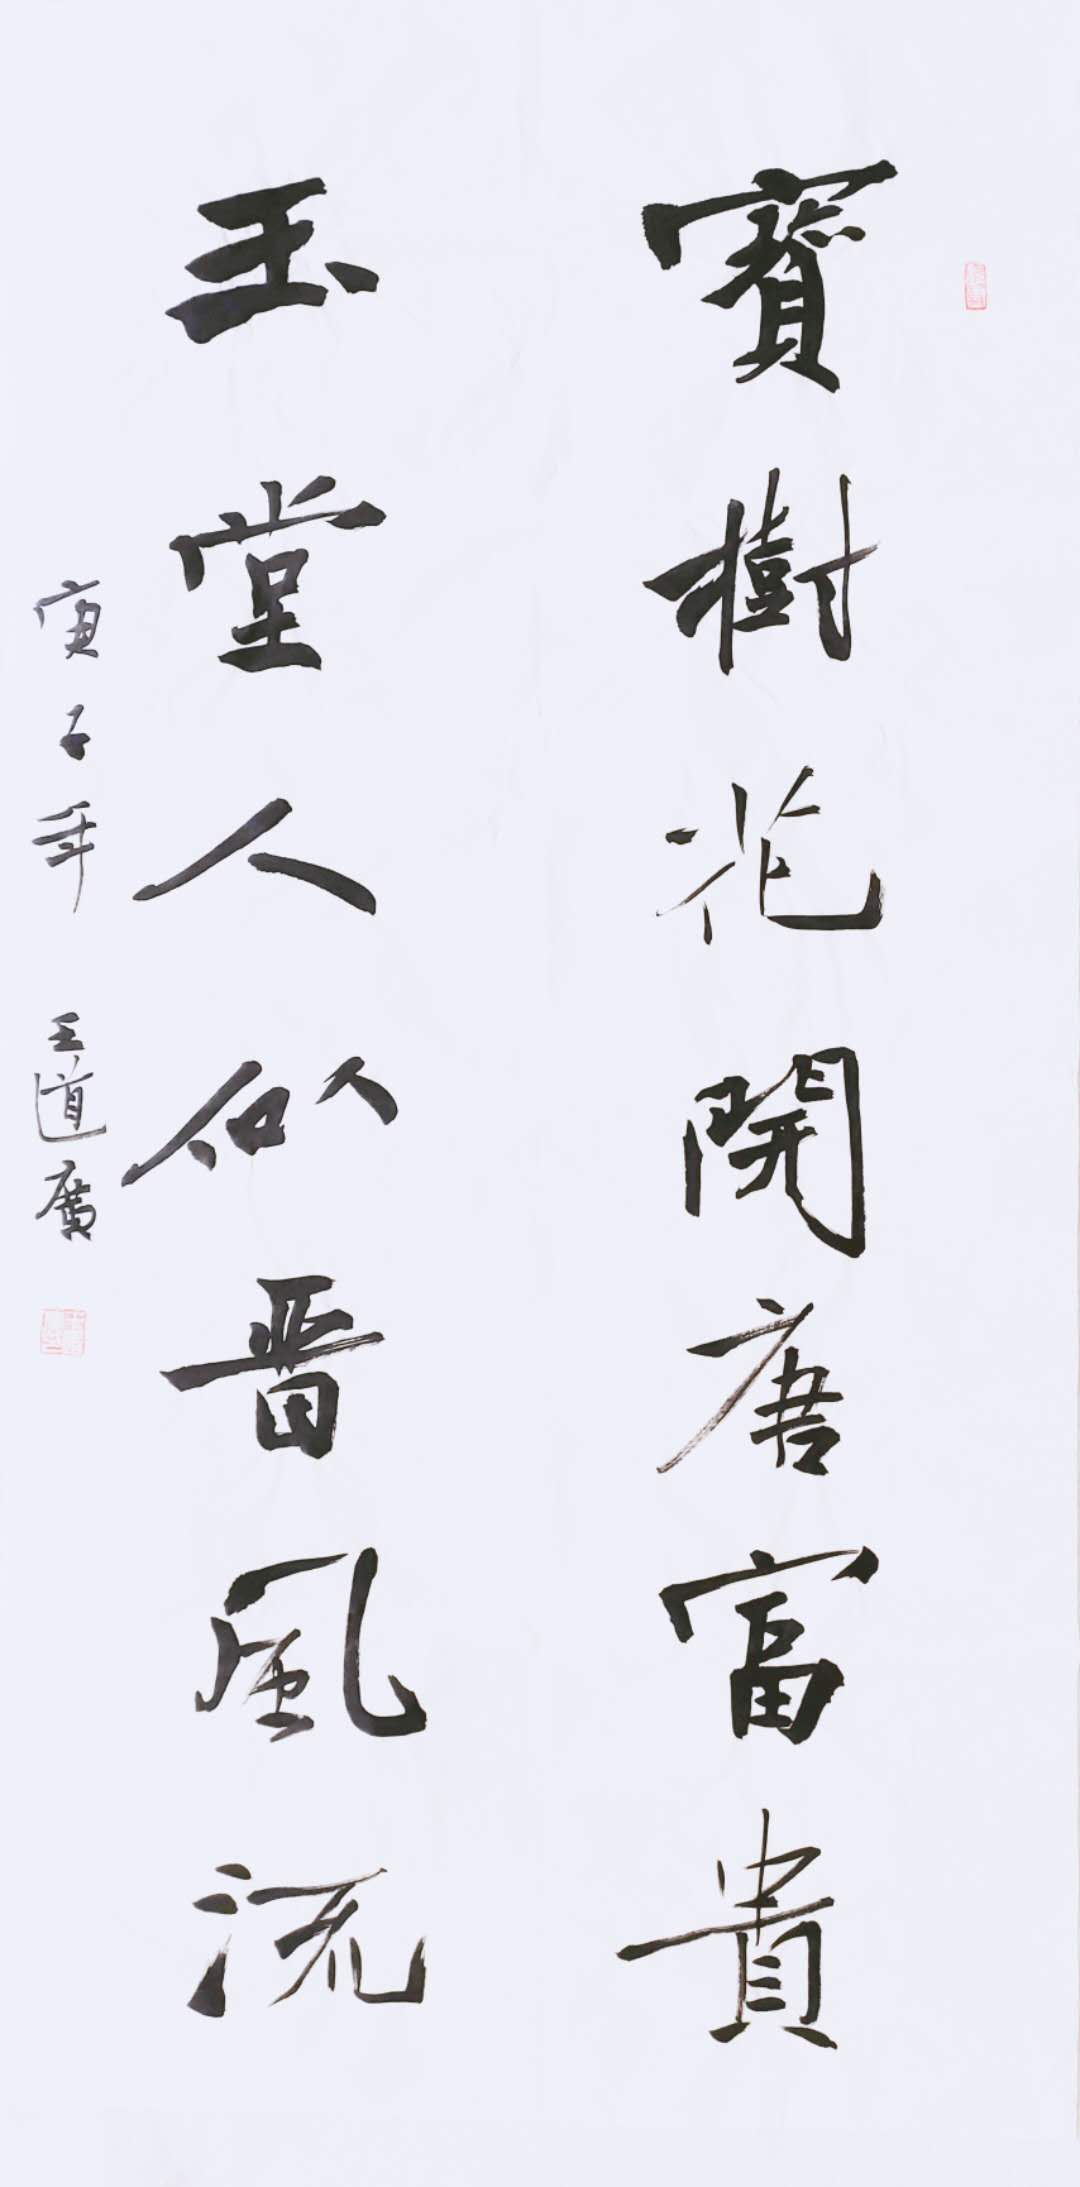 寶樹花開唐富貴
玉堂人似晋風流
庚子年 王道廣